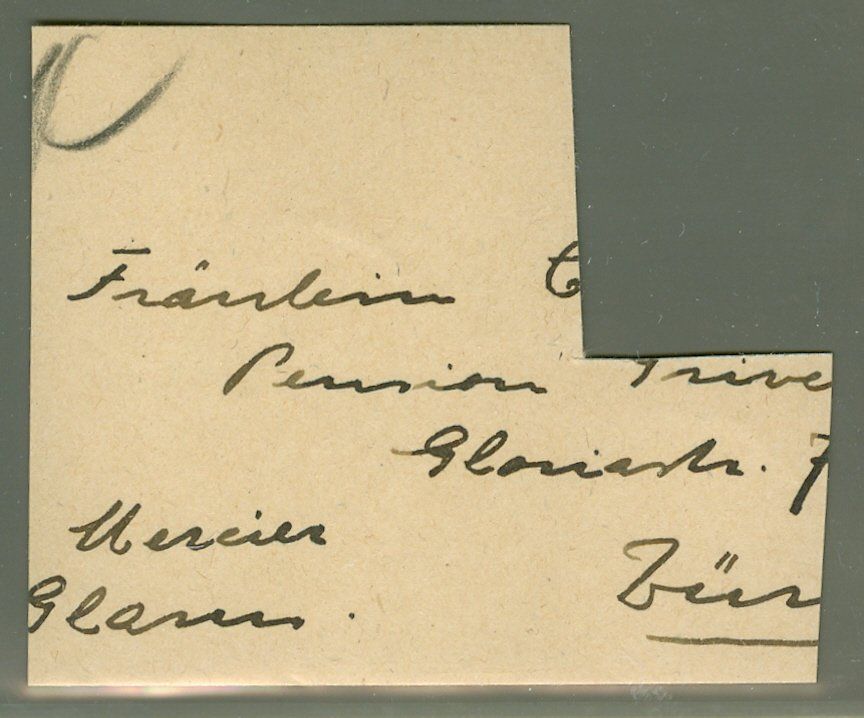 Fräulein C
Pension Prive
Gloriastr. 7
Mercier
Glarus.
Zür